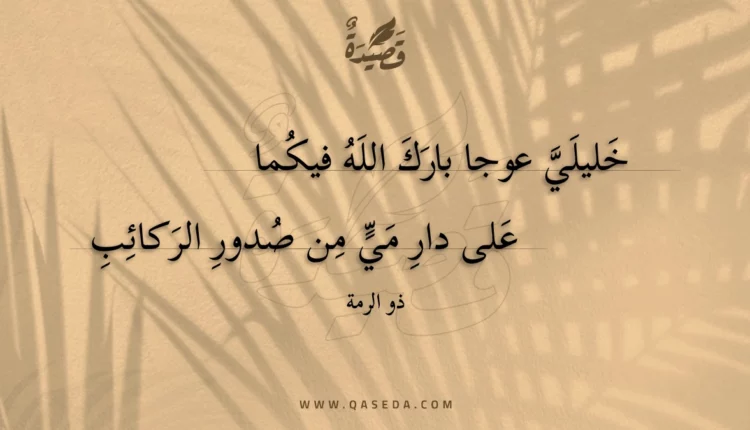 قَصِيْدَةٌ
خَليلَيَّ عوجا بارَكَ اللَهُ فيكُما
عَلى دارِ مَيٍّ مِن صُدورِ الرَكائِبِ
ذو الرمة
WWW.QASEDA.COM